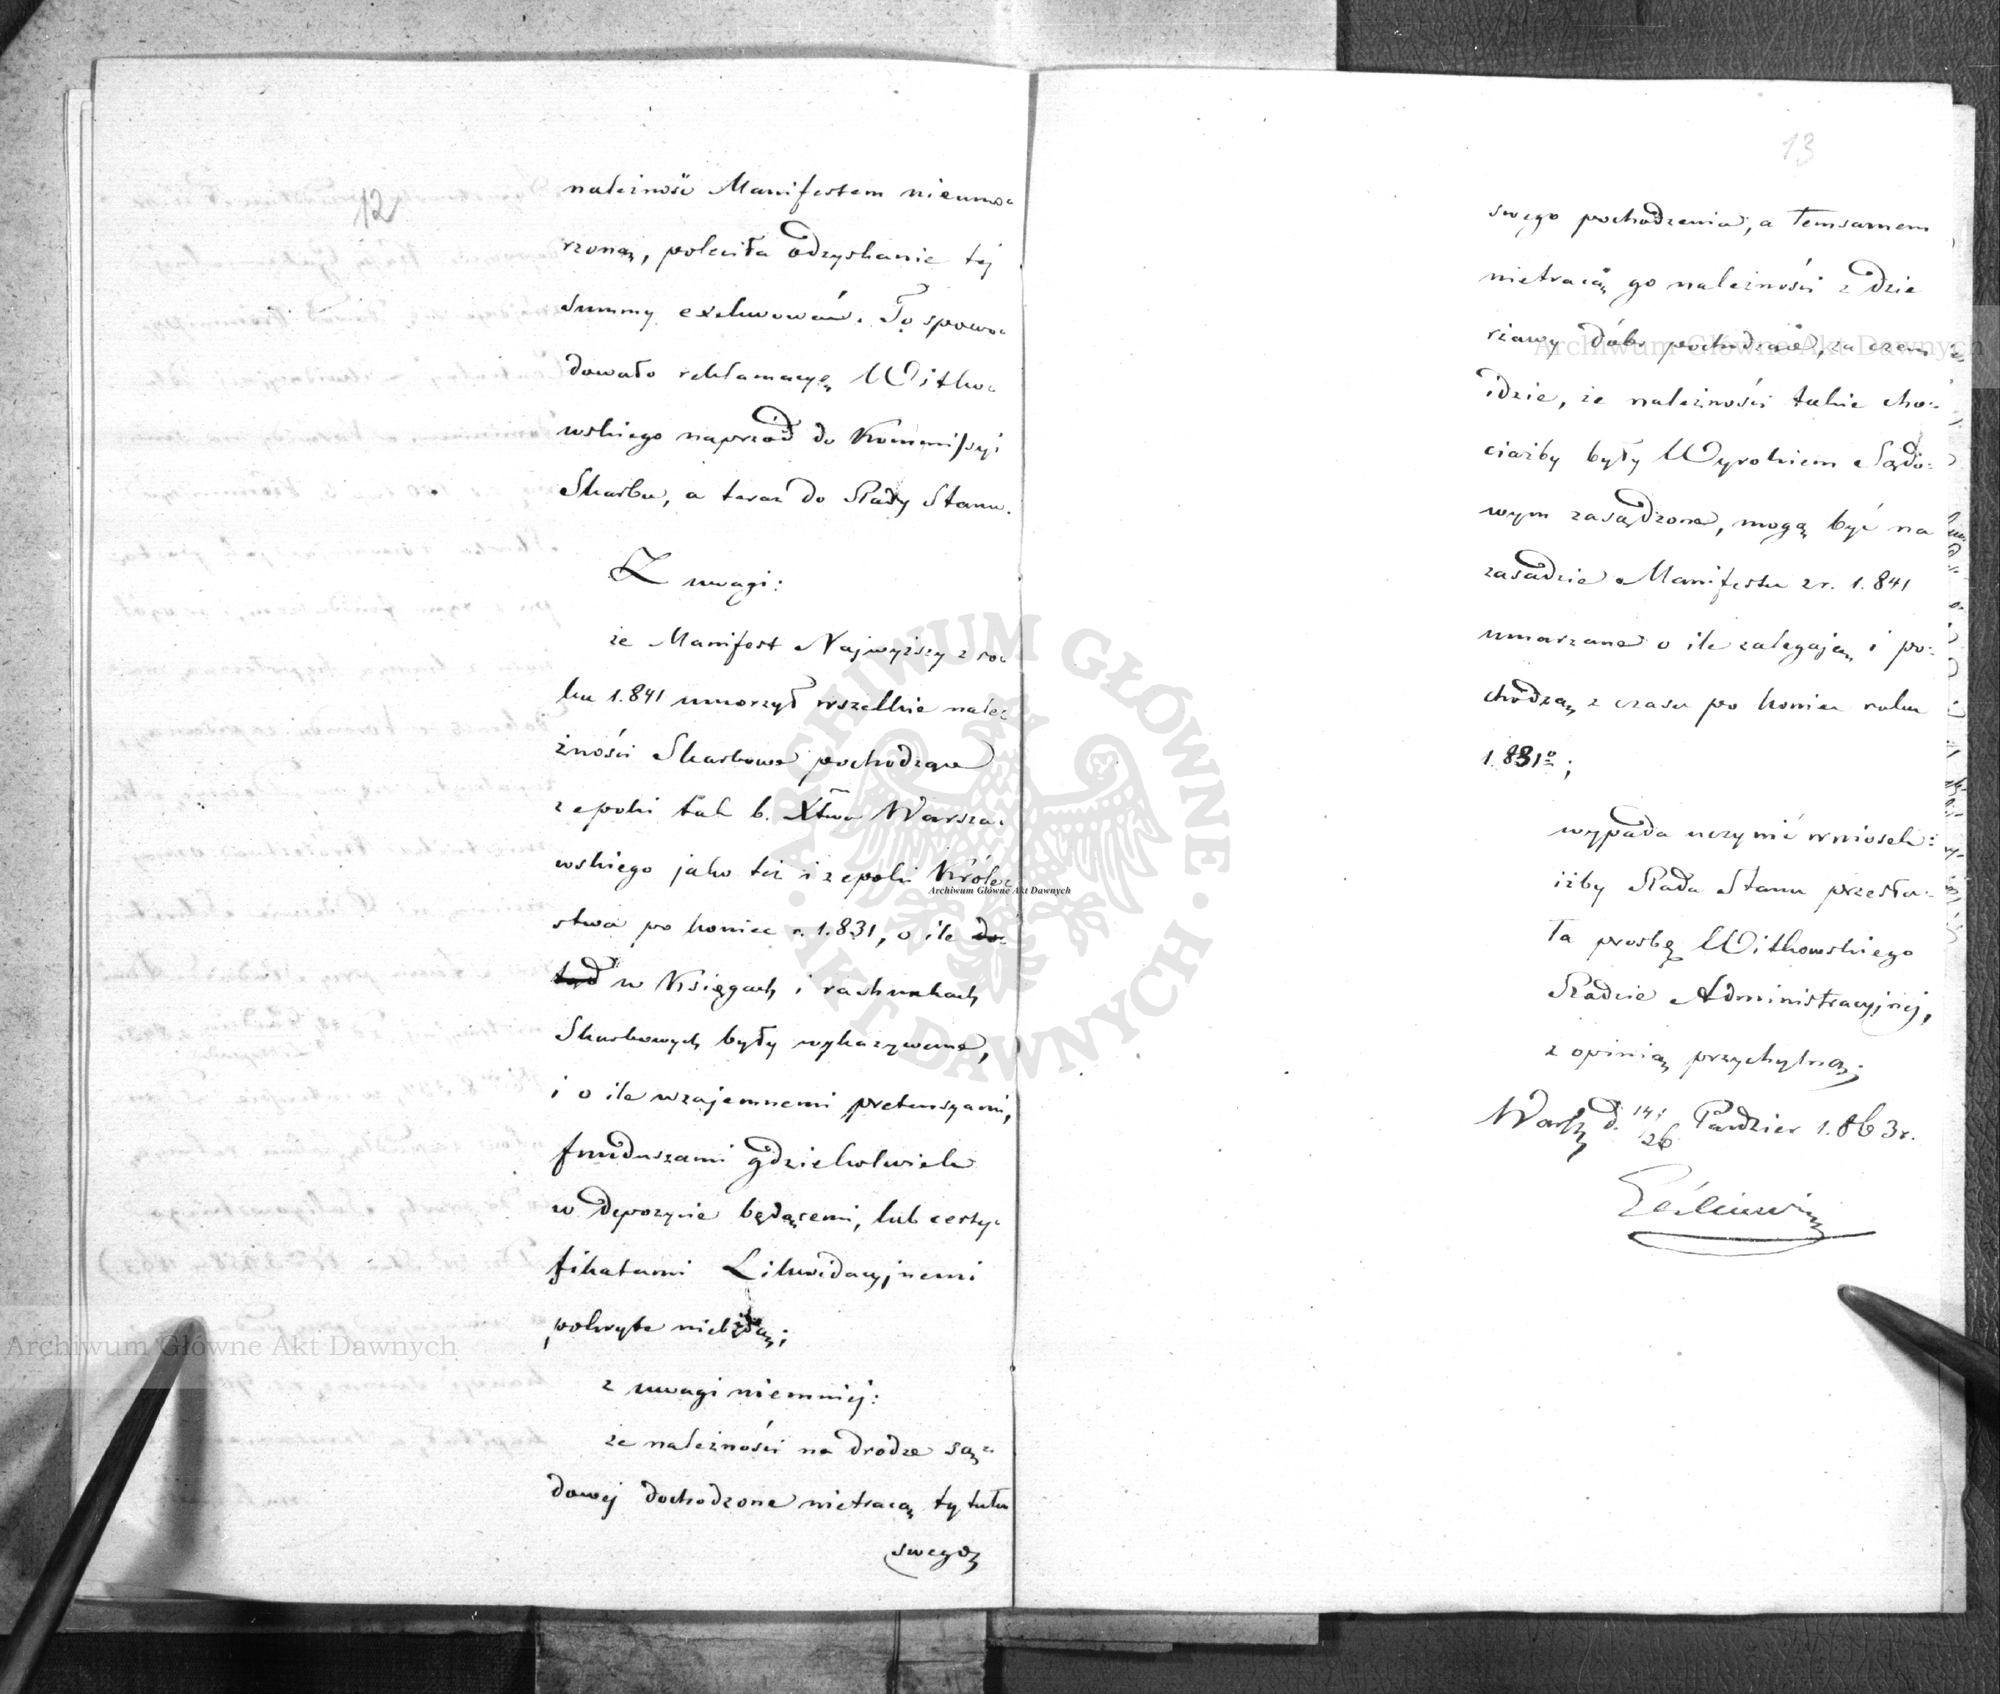 12
należność Manifestem nieumo-
rzoną, poleciła odzyskanie tej
summy exekwować. To spowo-
dowało reklamacyę Witko-
wskiego naprzód do Kommissyi
Skarbu, a teraz do Rady Stanu.
Z uwagi:
że Manifest Najwyższy z ro-
ku 1.841 umorzył wszelkie nale-
żności Skarbowe pochodzące
z epoki tak b. Xtwa Warsza-
wskiego jako też i z epoki Króle-
stwa po koniec r. 1.831, o ile do-
tąd w Księgach i rachunkach
Skarbowych były wykazywane,
i o ile wzajemnemi pretensyami,
funduszami gdziekolwiek
w depozycie będącemi, lub certy-
fikatami Likwidacyjnemi
pokryte niebędą;
z uwagi niemniej:
że należności na drodze są-
dowej dochodzone nietracą tytułu
swego
13
swego pochodzenia, a temsamem
nietracą go należności z dzie
rżawy dóbr pochodzące, za czem
idzie, że należności takie cho-
ciażby były Wyrokiem Sądo-
wym zasądzone, mogą być na
zasadzie Manifestu z r. 1.841
umarzane o ile zalegają i po-
chodzą z czasu po koniec roku
1.831º;
wypada uczynić wniosek:
iżby Rada Stanu przesła-
ła prosbę Witkowskiego
Radzie Administracyjnej,
z opinią przychylną.
Warsz d. 14/26 Paździer 1.863 r.
Archiwum Główne Akt Dawnych
Archiwum Główne Akt Dawnych
Archiwum Główne Akt Dawnych
ARCHIWUM GŁÓWNE AKT DAWNYCH